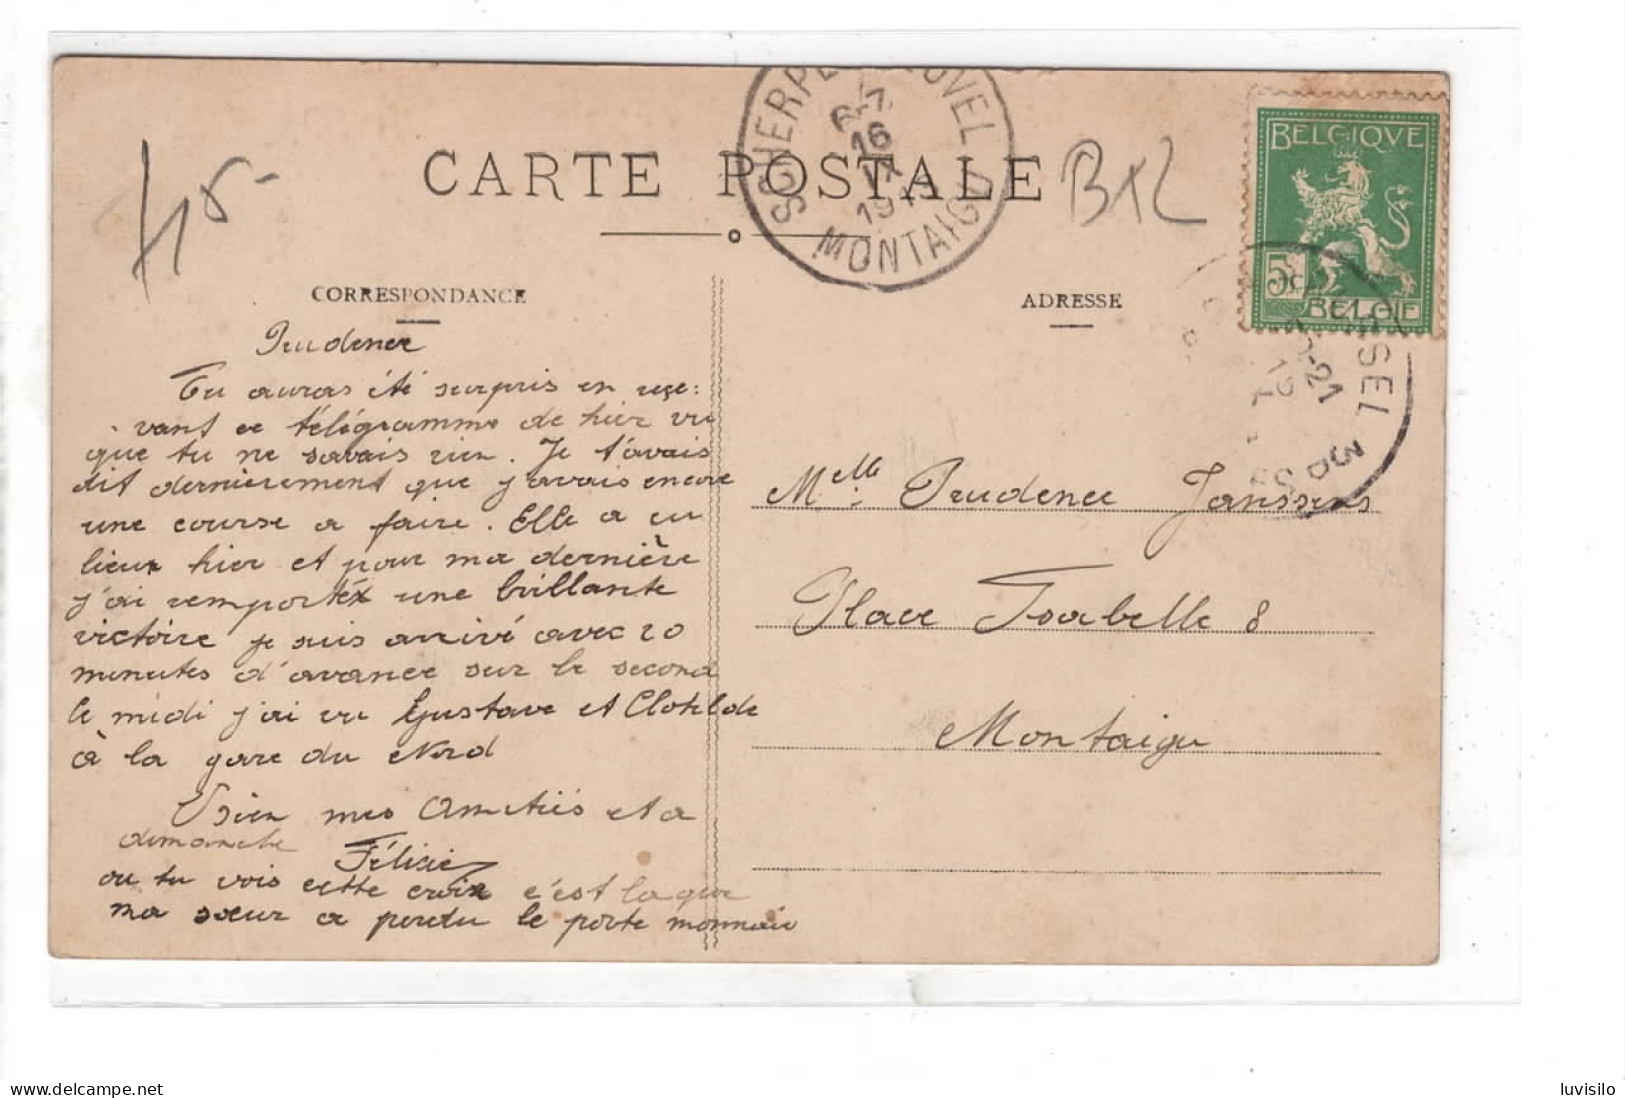 SCHERPENHEUVEL
6-7
16
IX
1913
MONTAIGU
CARTE POSTALE
BELGIQVE
5c
BELGIE
45-
B12
CORRESPONDANCE
Prudence
Tu auras été surpris en reçe:
vant ce télégramme de hier vu
que tu ne savais rien. Je t'avais
dit dernièrement que j'avais encore
une course a faire. Elle a eu
lieux hier et pour ma dernière
j'ai remportéx une brillante
victoire je suis arrivé avec 20
minutes d'avance sur le second
le midi j'ai vu Gustave et Clotilde
à la gare du Nord
Bien mes Amitiés et a
dimanche Félicie
ou tu vois cette croix c'est la que
ma sœur a perdu le porte monnaie
ADRESSE
Melle Prudence Janssens
Place Isabelle 8
Montaigu
delcampe.net
luvisilo